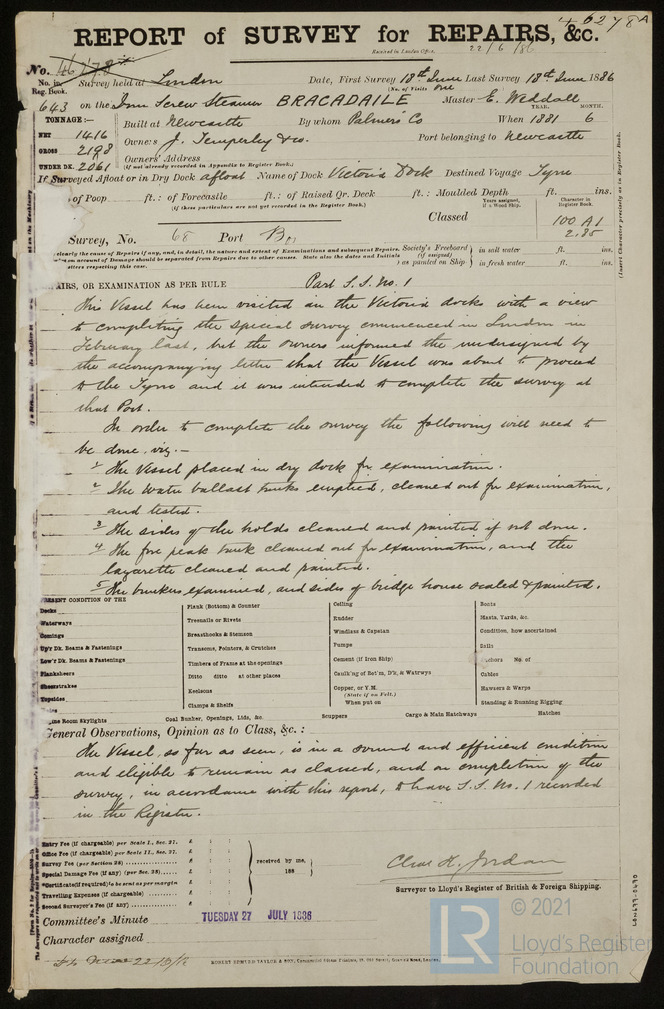 46278A
REPORT of SURVEY for REPAIRS, &c.
Received in London Office, 22/6/86
No. 46278A
No. in Reg. Book. Survey held at London Date, First Survey 18th June Last Survey 18th June 1886
(No. of Visits one
643 on the Iron Screw Steamer BRACADAILE Master E. Weddell
TONNAGE:—
YEAR. MONTH.
NET 1416 Built at Newcastle By whom Palmers Co When 1881 6
GROSS 2198 Owners J. Temperley & Co. Port belonging to Newcastle
UNDER DK. 2061 Owners' Address
(if not already recorded in Appendix to Register Book.)
If Surveyed Afloat or in Dry Dock afloat Name of Dock Victoria Dock Destined Voyage Tyne
of Poop ft.: of Forecastle ft.: of Raised Qr. Deck ft.: Moulded Depth ft. ins.
(if these particulars are not yet recorded in the Register Book.)
Years assigned, if a Wood Ship. Character in Register Book.
Classed 100 A1
2.85
Survey, No. 68 Port
clearly the cause of Repairs if any, and, in detail, the nature and extent of Examinations and subsequent Repairs.
on account of Damage should be separated from Repairs due to other causes. State also the dates and Initials
letters respecting this case.
Society's Freeboard (if assigned) as painted on Ship in salt water ft. ins.
in fresh water ft. ins.
(Insert Character precisely as in Register Book.
AIRS, OR EXAMINATION AS PER RULE Part S.S. No. 1
This Vessel has been visited in the Victoria docks with a view
to completing the special survey commenced in London in
February last, but the owners informed the undersigned by
the accompanying letter that the Vessel was about to proceed
to the Tyne and it was intended to complete the survey at
that Port.
In order to complete the survey the following will need to
be done, viz. —
1 The Vessel placed in dry dock for examination.
2 The water ballast tanks emptied, cleaned out for examination,
and tested.
3 The sides of the holds cleaned and painted if not done.
4 The fore peak tank cleaned out for examination, and the
lazarette cleaned and painted.
5 The bunkers examined, and sides of bridge house scaled & painted.
PRESENT CONDITION OF THE
Decks
Waterways
Comings
Up'r Dk. Beams & Fastenings
Low'r Dk. Beams & Fastenings
Planksheers
Sheerstrakes
Topsides
Plank (Bottom) & Counter
Treenails or Rivets
Breasthooks & Stemson
Transoms, Pointers, & Crutches
Timbers of Frame at the openings
Ditto ditto at other places
Keelsons
Clamps & Shelfs
Ceiling
Rudder
Windlass & Capstan
Pumps
Cement (if Iron Ship)
Caulk'ng of Bot'm, D'k, & Watrwys
Copper, or Y.M.
(State if on Felt.)
When put on
Boats
Masts, Yards, &c.
Condition, how ascertained
Sails
Anchors No. of
Cables
Hawsers & Warps
Standing & Running Rigging
ine Room Skylights Coal Bunker, Openings, Lids, &c. Scuppers Cargo & Main Hatchways Hatches
General Observations, Opinion as to Class, &c.:
The Vessel, so far as seen, is in a sound and efficient condition
and eligible to remain as classed, and on completion of the
survey, in accordance with this report, to have S.S. No. 1 recorded
in the Register.
Entry Fee (if chargeable) per Scale I., Sec. 27. £ : :
Office Fee (if chargeable) per Scale II., Sec. 27. £ : :
Survey Fee (per Section 28) £ : :
Special Damage Fee (if any) (per Sec. 28) £ : :
Certificate (if required) to be sent as per margin £ : :
Travelling Expenses (if chargeable) £ : :
Second Surveyor's Fee (if any) £ : :
received by me,
188
Chas. H. Jordan
Surveyor to Lloyd's Register of British & Foreign Shipping.
Committee's Minute TUESDAY 27 JULY 1886
Character assigned
ROBERT EDMUND TAYLOR & SON,
LON699-0690
LR
© 2021
Lloyd's Register
Foundation